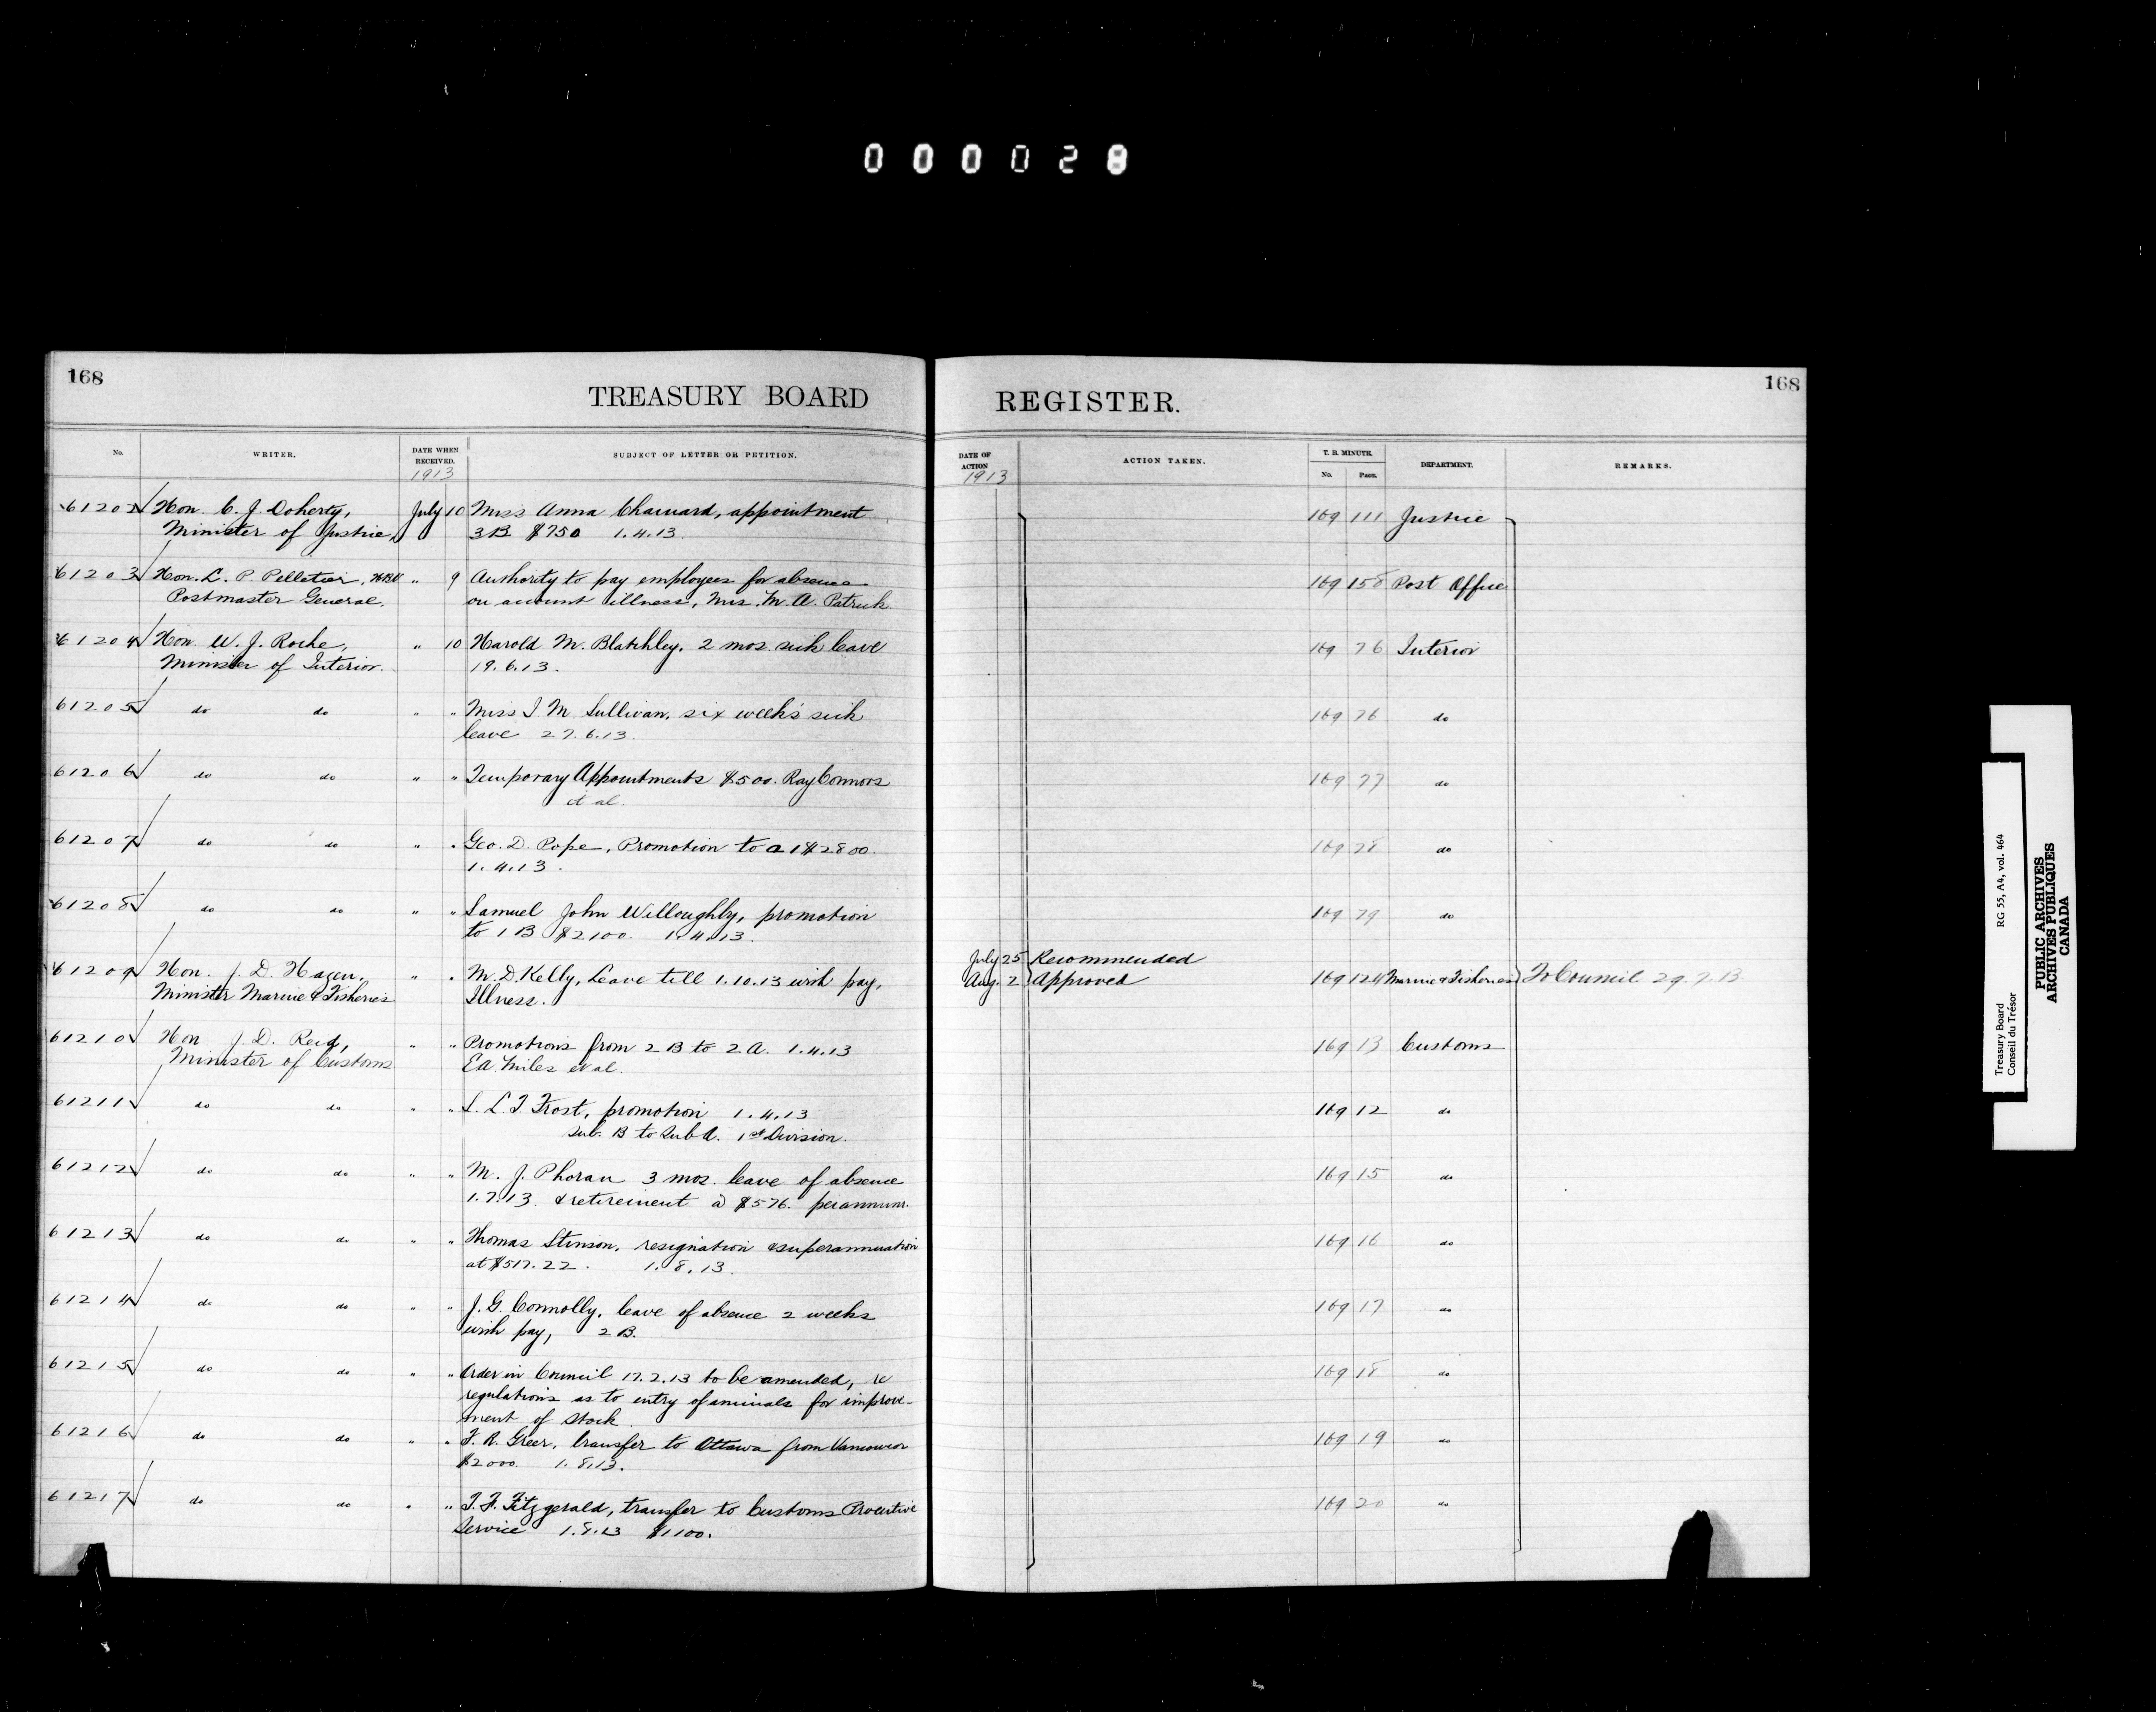 000028
168
TREASURY BOARD
REGISTER.
168
No. WRITER. DATE WHEN RECEIVED. SUBJECT OF LETTER OR PETITION.
DATE OF ACTION ACTION TAKEN. T. B. MINUTE. No. PAGE. DEPARTMENT. REMARKS.
1913 1913
61202 Hon. C. J. Doherty, July 10 Miss Anna Chauvard, appointment 169 111 Justice
Minister of Justice, 3B $750 1.4.13.
61203 Hon. L. P. Pelletier, " 9 Authority to pay employees for absence 169 158 Post Office
Postmaster General. on account illness, Mrs. M. A. Patrick
61204 Hon. W. J. Roche, " 10 Harold M. Blatchley. 2 mos. sick leave 169 76 Interior
Minister of Interior. 19.6.13.
61205 do do " " Miss I M Sullivan, six week's sick 169 76 do
leave 27.6.13.
61206 do do " " Temporary Appointments $500. Ray Connors 169 77 do
et al.
61207 do do " " Geo. D. Pope, Promotion to a 1 $2800. 169 78 do
1.4.13.
61208 do do " " Samuel John Willoughby, promotion 169 79 do
to 1 B $2100. 1.4.13.
July 25 Recommended
61209 Hon. J. D. Hazen, " " M. D. Kelly, Leave till 1.10.13 with pay, Aug. 2 Approved 169 124 Marine & Fisheries To Council 29.7.13
Minister Marine & Fisheries Illness.
61210 Hon J. D. Reid, " " Promotions from 2 B to 2 A. 1.4.13 169 13 Customs
Minister of Customs E A. Miles et al.
61211 do do " " L. L. T Frost, promotion 1.4.13 169 12 do
Sub. B to Sub A. 1st Division.
61212 do do " " M. J. Phoran 3 mos. leave of absence 169 15 do
1.7.13. & retirement @ $576. per annum.
61213 do do " " Thomas Stinson, resignation & superannuation 169 16 do
at $517.22. 1.8.13.
61214 do do " " J. G. Connolly, leave of absence 2 weeks 169 17 do
with pay, 2 B.
61215 do do " " Order in Council 17.2.13 to be amended, re 169 18 do
regulations as to entry of animals for improve-
ment of stock.
61216 do do " " F. R. Greer, transfer to Ottawa from Vancouver 169 19 do
$2000. 1.8.13.
61217 do do " " T. F. Fitzgerald, transfer to Customs Preventive 169 20 do
Service 1.8.13 $1100.
Treasury Board RG 55, A4, vol. 464
Conseil du Trésor
PUBLIC ARCHIVES
ARCHIVES PUBLIQUES
CANADA